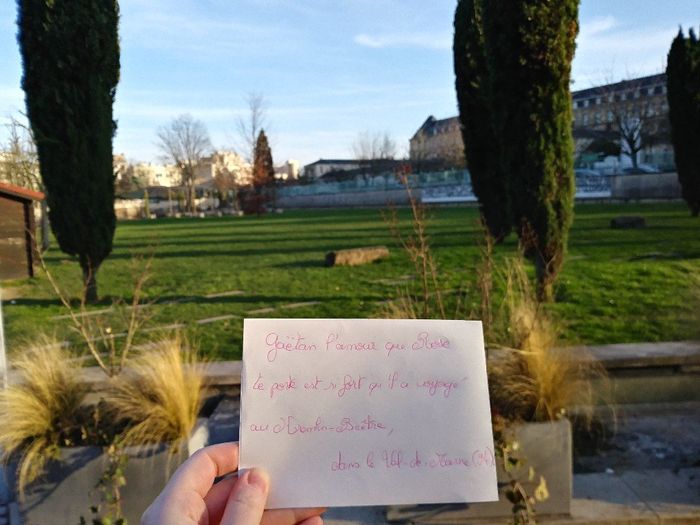 Gaëtan l'amour que Rose
te porte est si fort qu'il a voyagé
au Kremlin-Bicêtre,
dans le Val-de-Marne (94)